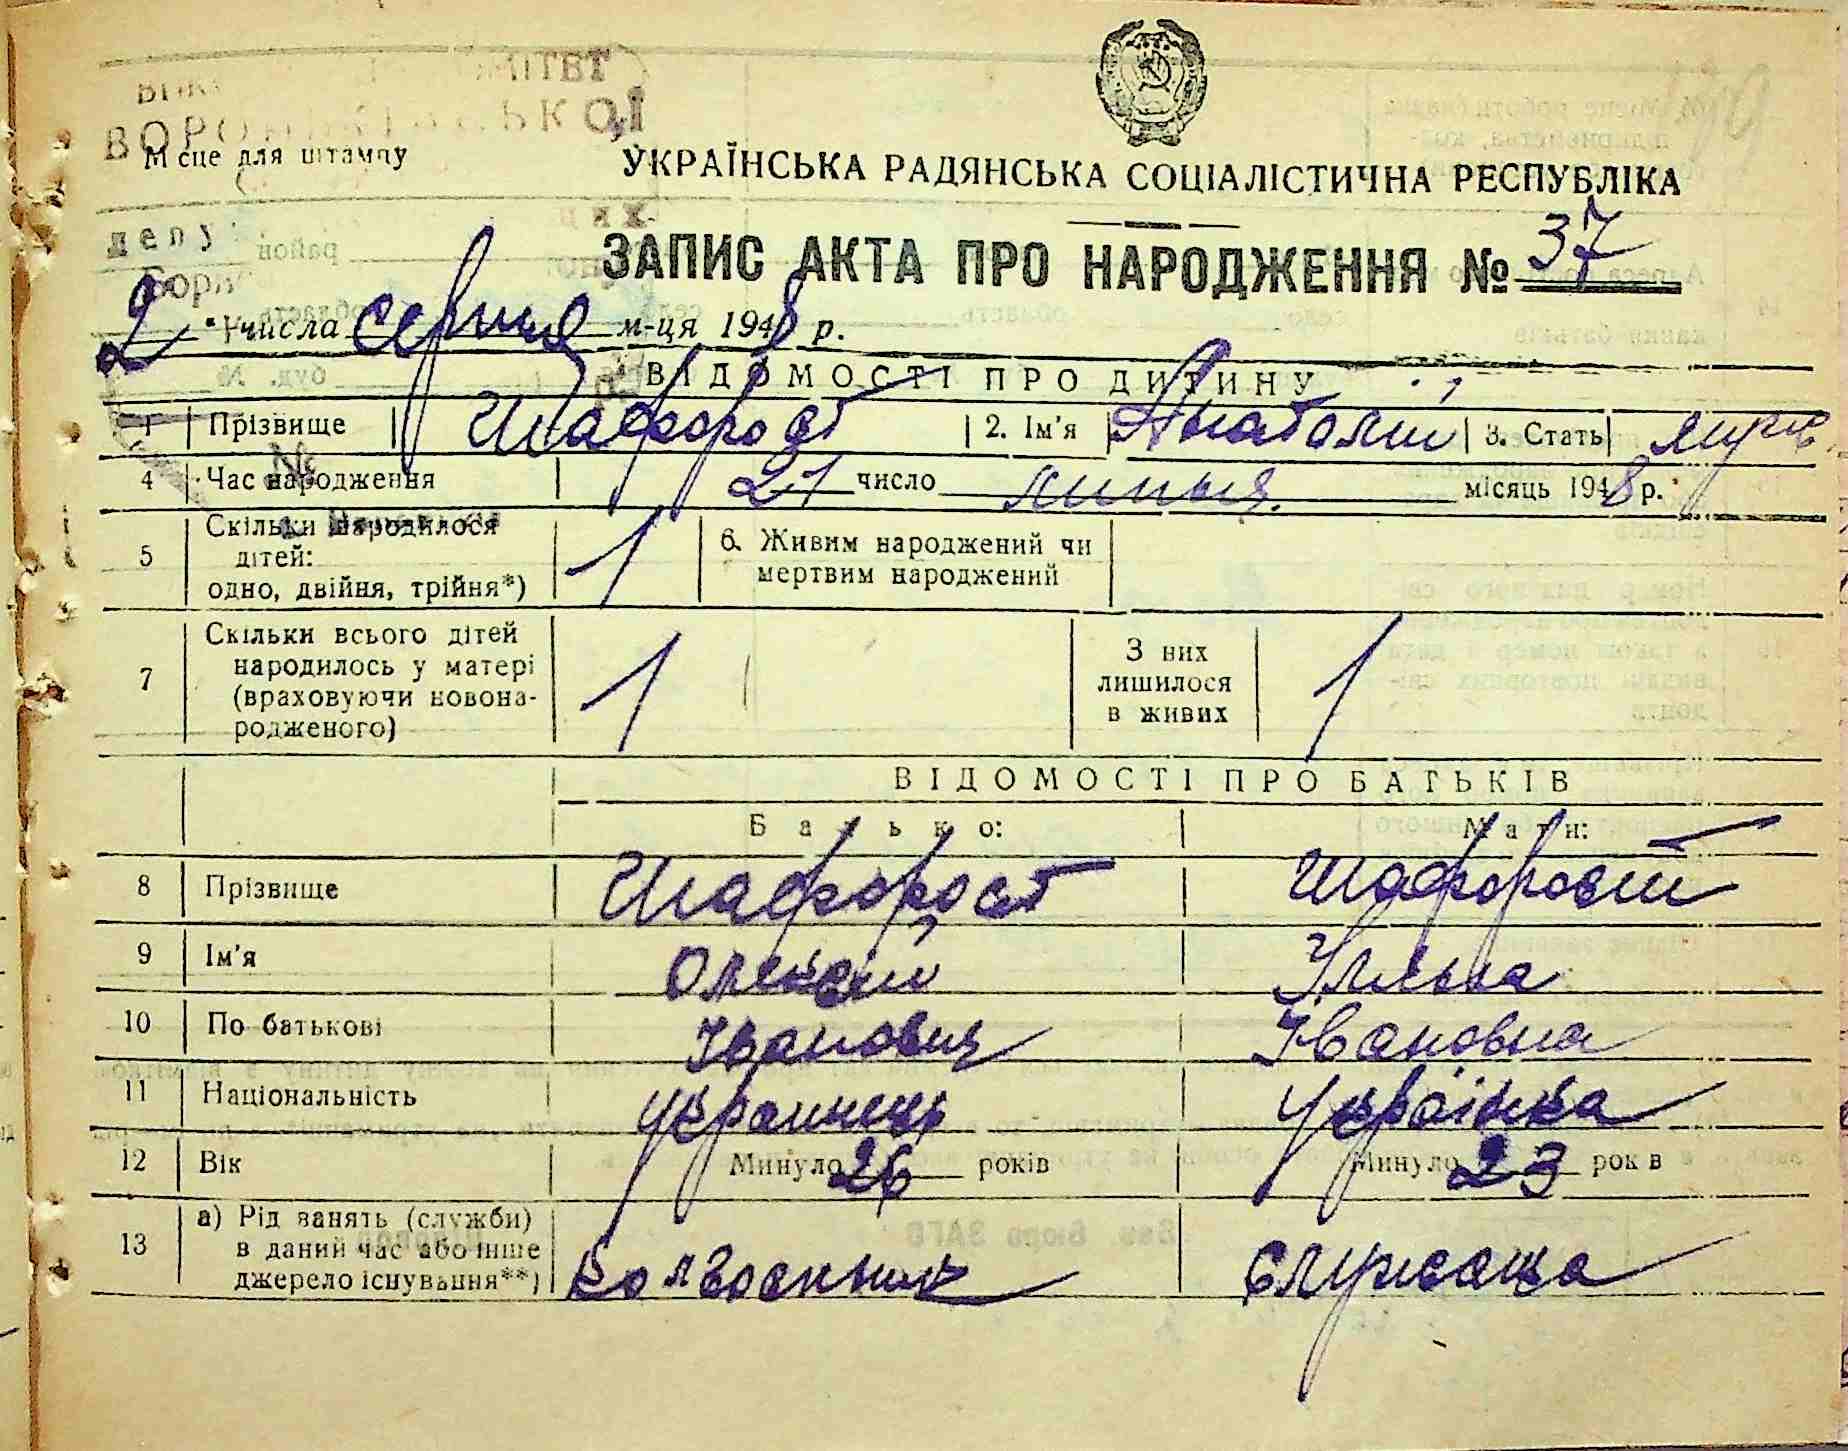 ВОРОНЬКІВСЬКОЇ
Місце для штампу
УКРАЇНСЬКА РАДЯНСЬКА СОЦІАЛІСТИЧНА РЕСПУБЛІКА
депу
ЗАПИС АКТА ПРО НАРОДЖЕННЯ № 37
2 числа серпня м-ця 1948 р.
ВІДОМОСТІ ПРО ДИТИНУ
1 Прізвище Шафорост 2. Ім'я Анатолій 3. Стать муж
4 Час народження 21 число липня. місяць 1948 р.
5 Скільки народилося
дітей:
одно, двійня, трійня*) 1 6. Живим народжений чи
мертвим народжений
7 Скільки всього дітей
народилось у матері
(враховуючи новона-
родженого) 1 З них
лишилося
в живих 1
ВІДОМОСТІ ПРО БАТЬКІВ
Батько: Мати:
8 Прізвище Шафорост Шафорост
9 Ім'я Олексій Уляна
10 По батькові Іванович Івановна
11 Національність украинець Українка
12 Вік Минуло 26 років Минуло 23 років
13 а) Рід занять (служби)
в даний час або інше
джерело існування**) Колгоспник служаща